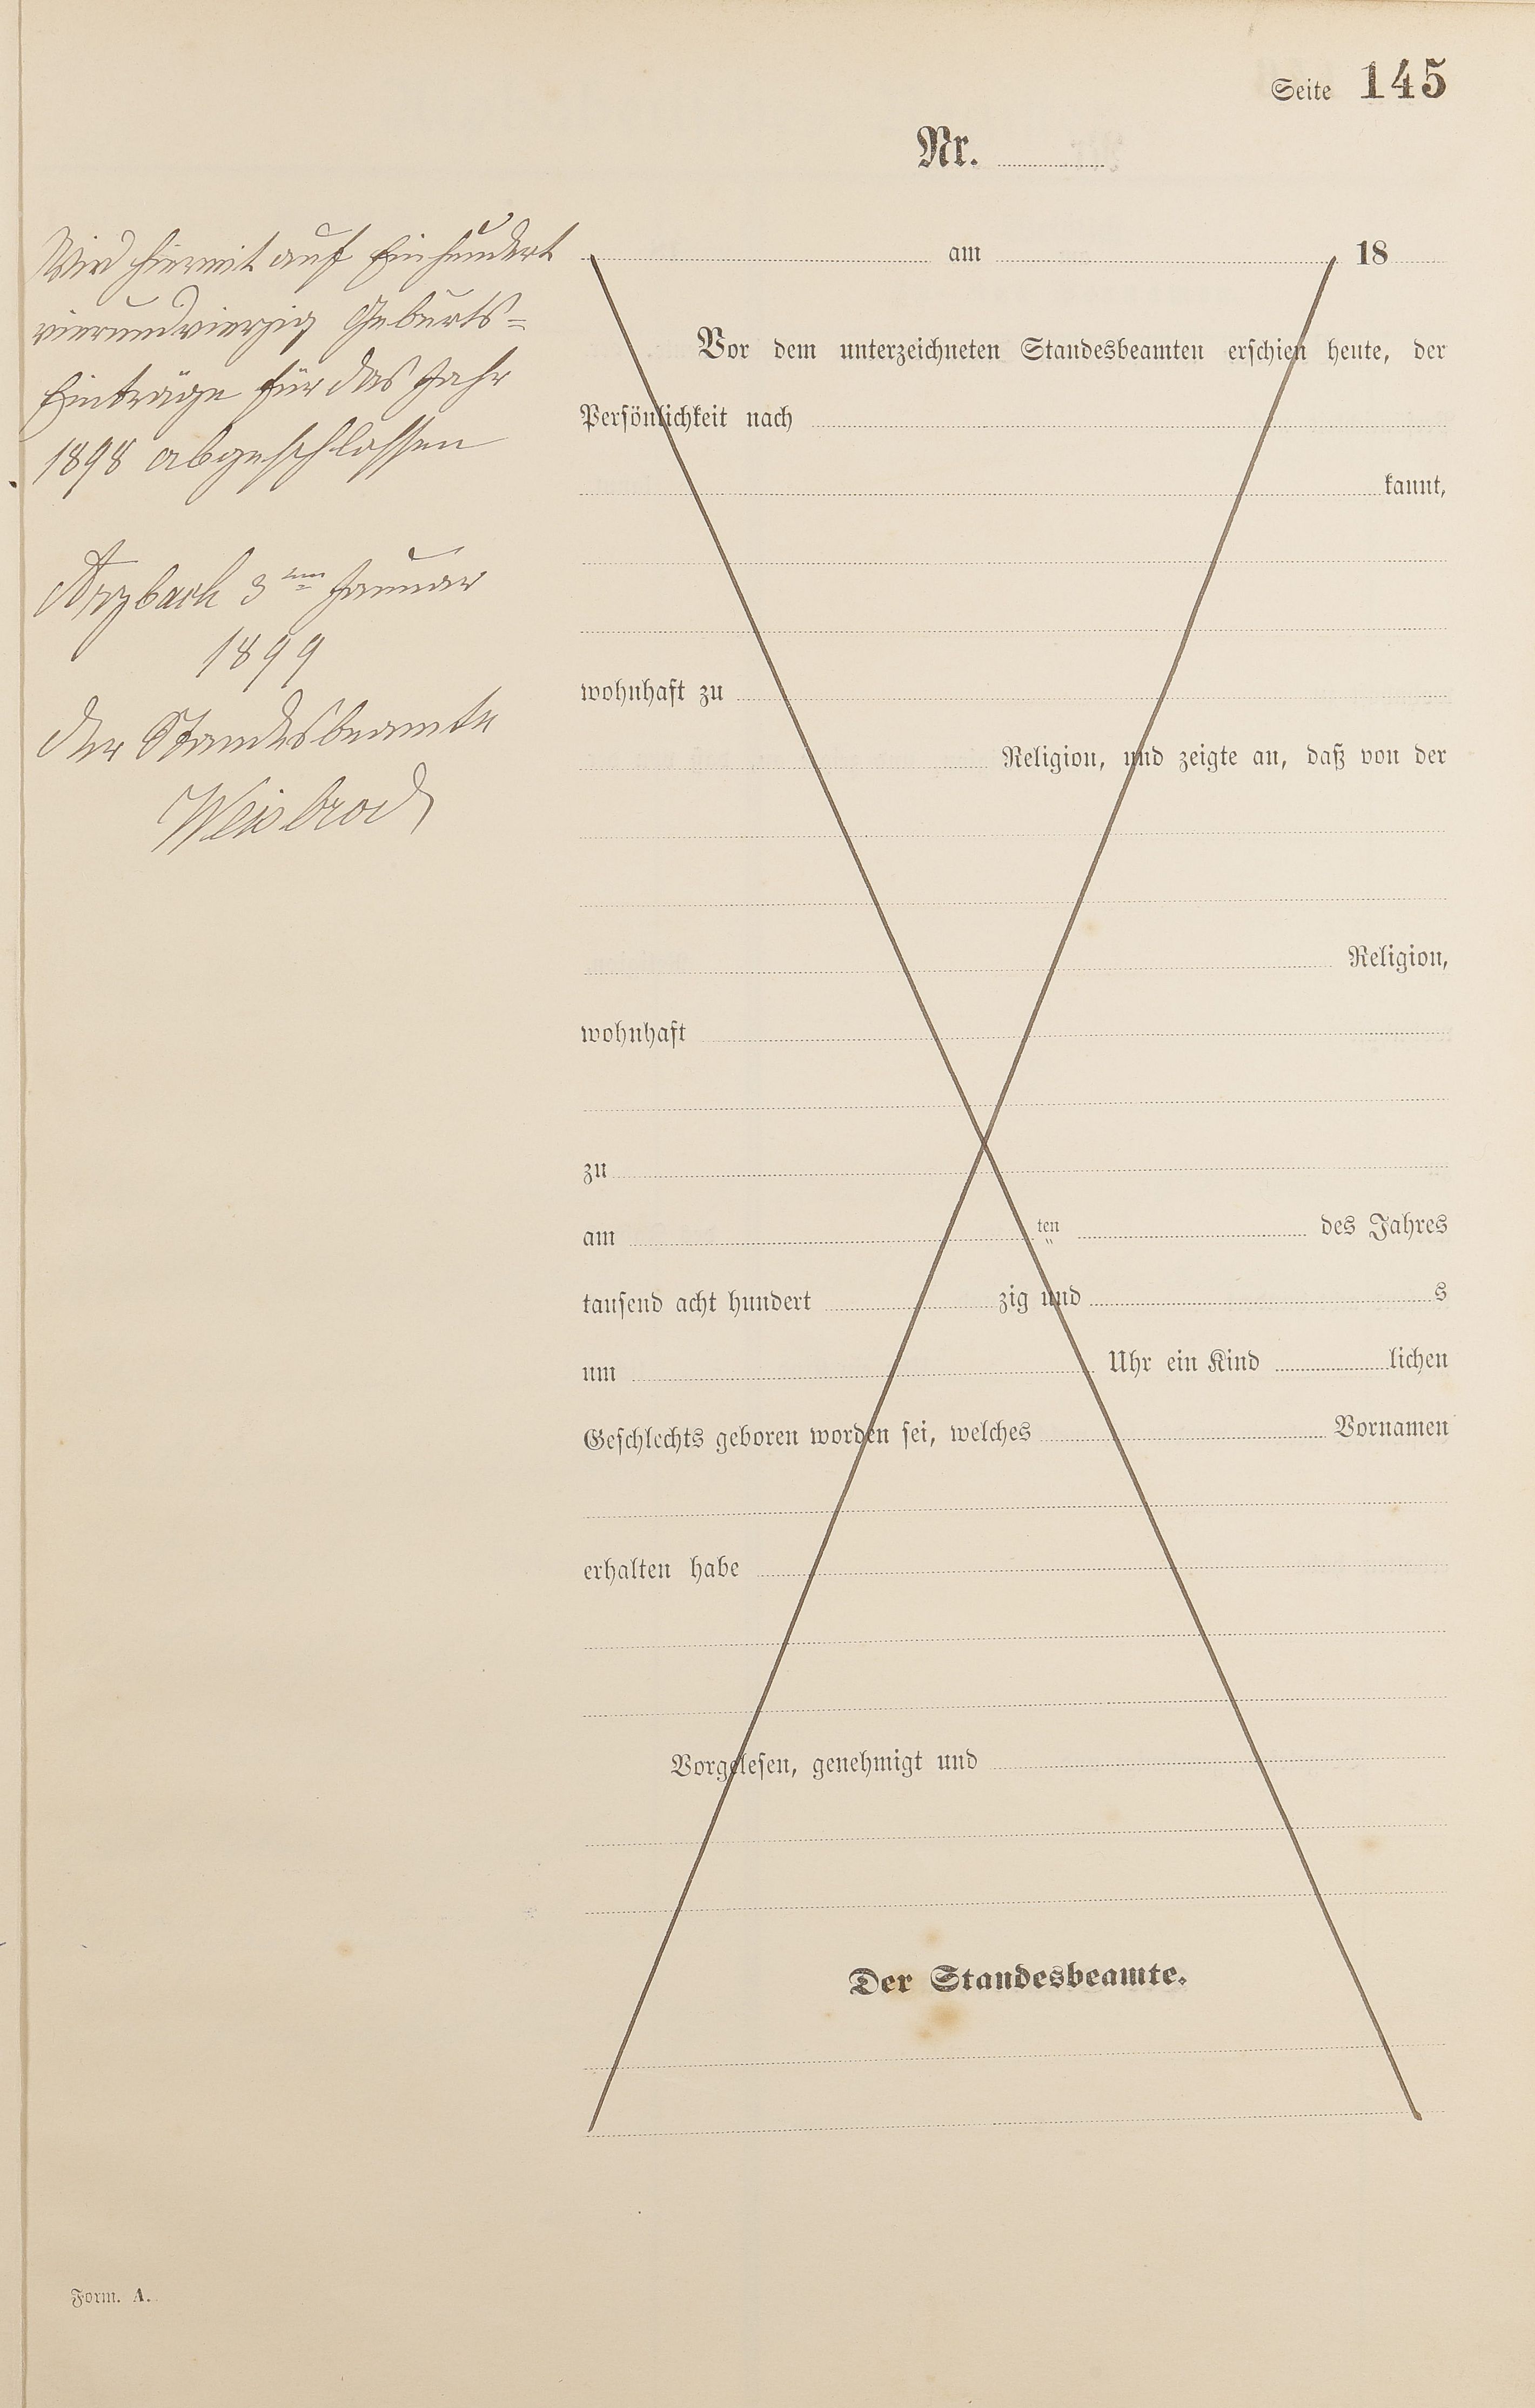 Seite 145
Nr.
Wird hiermit auf Einhundert
vierundvierzig Geburts=
Einträge für das Jahr
1898 abgeschlossen
Arzbach 3ten Januar
1899
der Standesbeamte
Weisbrod
am 18
Vor dem unterzeichneten Standesbeamten erschien heute, der
Persönlichkeit nach
kannt,
wohnhaft zu
Religion, und zeigte an, daß von der
Religion,
wohnhaft
zu
am ten des Jahres
tausend acht hundert zig und s
um Uhr ein Kind lichen
Geschlechts geboren worden sei, welches Vornamen
erhalten habe
Vorgelesen, genehmigt und
Der Standesbeamte.
Form. A.